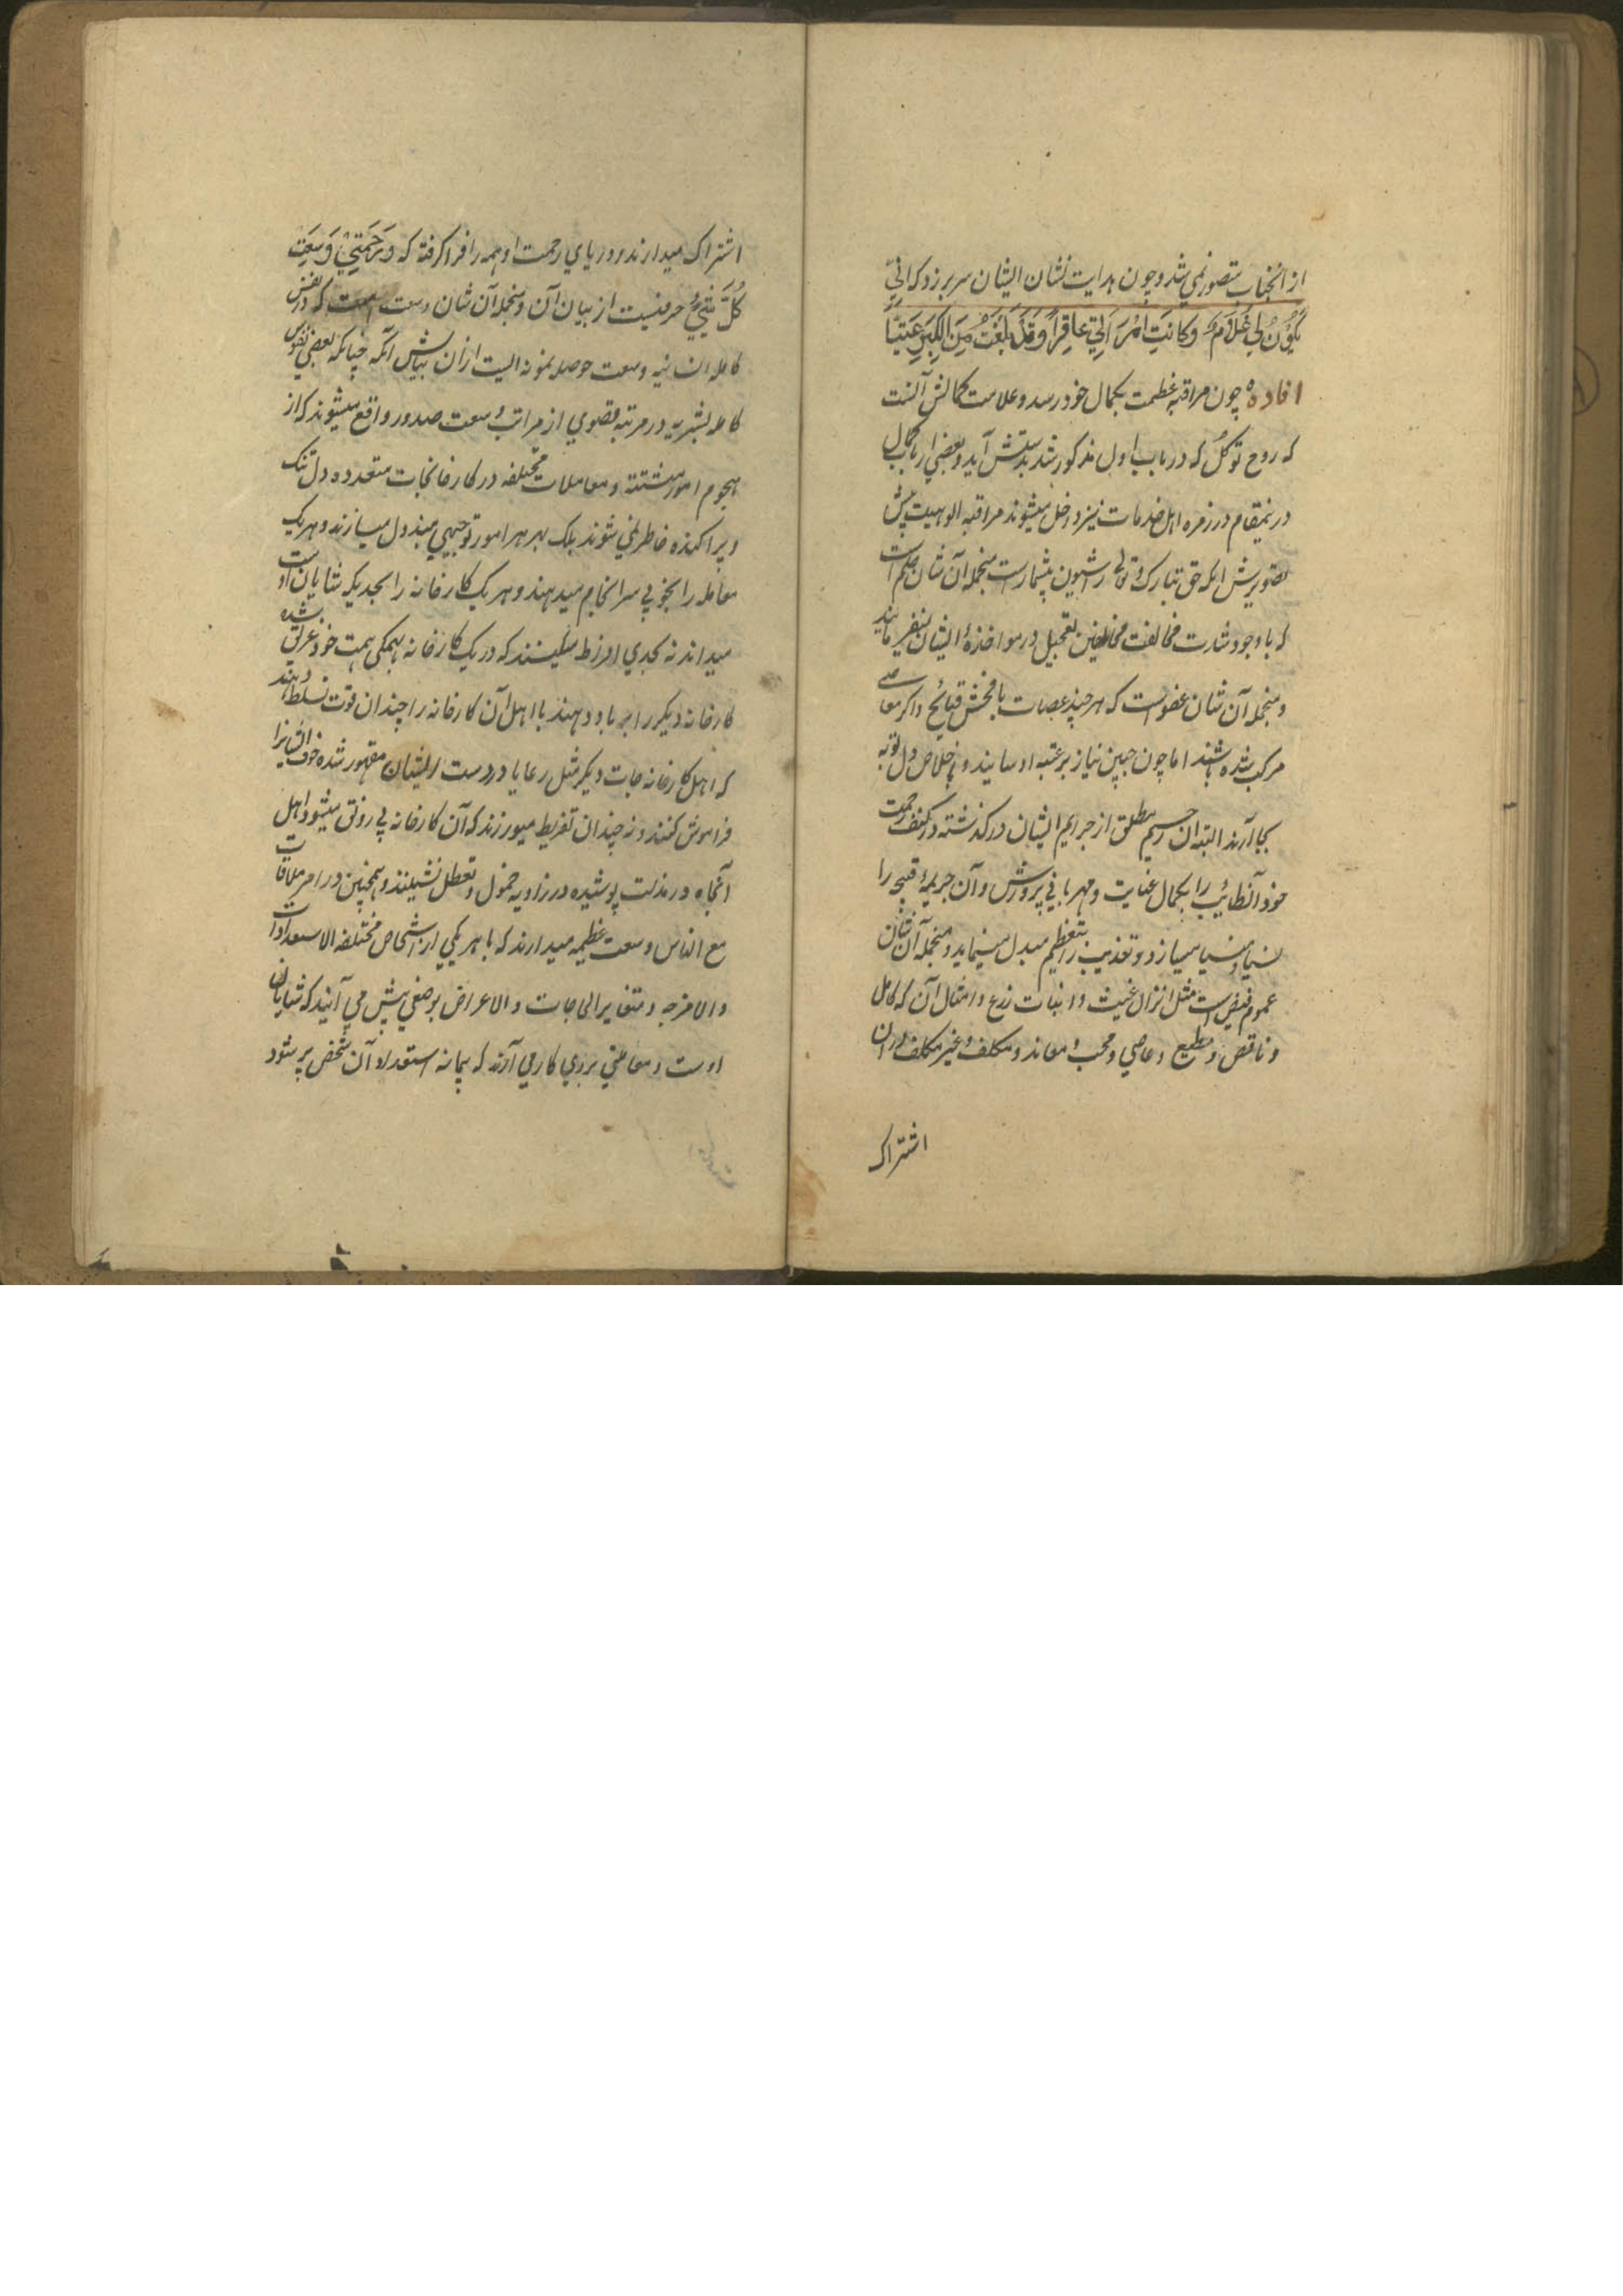 از انجناب متصور نمی شد و چون هدایت نشان ایشان سر بر زد که انّي
يَكُوْنُ لِي غُلَامٌ وَكَانَتِ امْرَاَتِي عَاقِرًا وَقَدْ بَلَغْتُ مِنَ الْكِبَرِ عِتِيًّا
افاده چون مراقبهٔ عظمت بکمال خود رسد و علامت کمالش آنست
که روح توکل که در باب اول مذکور شد بدستش آید و بعضی ارباب کمال
درینمقام در زمره اهل خدمات نیز داخل میشوند مراقبه الوهیت پیش
تصویرش اینکه حق تبارک و تعالی را شیون بیشمارست منجمله آن شان حلم است
که با وجود شدت مخالفت مخالفین تعجیل در مواخذهٔ ایشان نمیفرمایند
و منجمله آن شان عفوست که هر چند عصات با فحش قبائح و اکبر معاصے
مرکب شده باشند اما چون جبین نیاز بر عتبه او سایند و باخلاص دل توبه
بجا آرند البته آن رحیم مطلق از جرایم ایشان درگذشته در کنف رحمت
خود آنطائب را بکمال عنایت و مهربانی پرورش و آن جریمهٔ قبیحه را
نسیا منسیا میسازد و تعذیب را بتعظیم مبدل مینماید و منجمله آن شان
عموم فیض ست مثل انزال غیث و انبات زرع و امثال آن که کامل
و ناقص و مطیع و عاصي و محب و معاند و مکلف و غیر مکلف دران
اشتراک
اشتراک میدارند و دریاي رحمت او همه را فرا گرفته که وَرَحْمَتِيْ وَسِعَتْ
كُلَّ شَيْءٍ حرفیست از بیان آن و منجمله آن شان وسعت است که در نفس
کامله انسانیه وسعت حوصله نمونه ایست ازان بیانش آنکه چنانکه بعضی نفوس
کامله بشریه در مرتبه قصوي از مراتب وسعت صدور واقع میشوند که از
هجوم امور مشتته و معاملات مختلفه در کارخانجات متعدده دل تنک
و پراکنده خاطر نمی شوند بلک بهر هر امور توجهي مبذول میسازند و هر یک
معامله را بخوبي سرانجام میدهند و هر یک کارخانه را بحدیکه شایان اوست
میدانند نه بحدي افراط میکنند که در یک کارخانه بهمگی همت خود غرق شده
کارخانه دیگر را بر باد دهند یا اهل آن کارخانه را چندان قوت تسلط دهند
که اهل کارخانه جات دیگر مثل رعایا در دست ایشان مقهور شده خوف ایشانرا
فراموش کنند و نه چندان تفریط میورزند که آن کارخانه بي رونق میشود و اهل
آنجاه در مذلت پوشیده در زاویه خمول و تعطل نشینند و همچنین در امر ملاقات
مع الناس وسعت عظیمه میدارند که با هر یکي از اشخاص مختلفه الاستعدادات
والامزجه و متغایر الحاجات و الاعراض بوضعي پیش مي آیند که شایان
اوست و معاملتي بروي کار مي آرند که پیمانه استعداد آن شخص پر شود